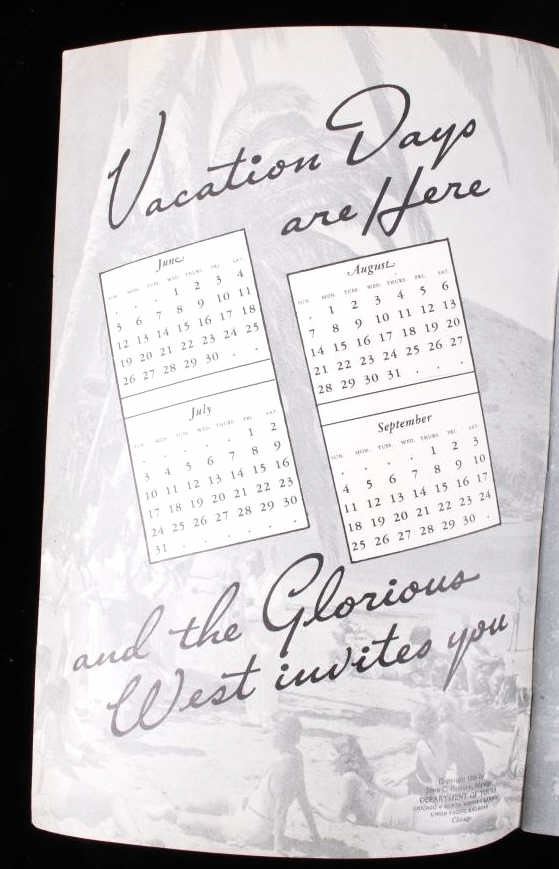 Vacation Days
are Here
June
SUN. MON. TUES. WED. THURS. FRI. SAT.
. . . 1 2 3 4
5 6 7 8 9 10 11
12 13 14 15 16 17 18
19 20 21 22 23 24 25
26 27 28 29 30 . .
July
SUN. MON. TUES. WED. THURS. FRI. SAT.
. . . . . 1 2
3 4 5 6 7 8 9
10 11 12 13 14 15 16
17 18 19 20 21 22 23
24 25 26 27 28 29 30
31 . . . . . .
August
SUN. MON. TUES. WED. THURS. FRI. SAT.
. 1 2 3 4 5 6
7 8 9 10 11 12 13
14 15 16 17 18 19 20
21 22 23 24 25 26 27
28 29 30 31 . . .
September
SUN. MON. TUES. WED. THURS. FRI. SAT.
. . . . 1 2 3
4 5 6 7 8 9 10
11 12 13 14 15 16 17
18 19 20 21 22 23 24
25 26 27 28 29 30 .
and the Glorious
West invites you
Copyright
DEPARTMENT of TOURS
CHICAGO & NORTH WESTERN
UNION PACIFIC
Chicago